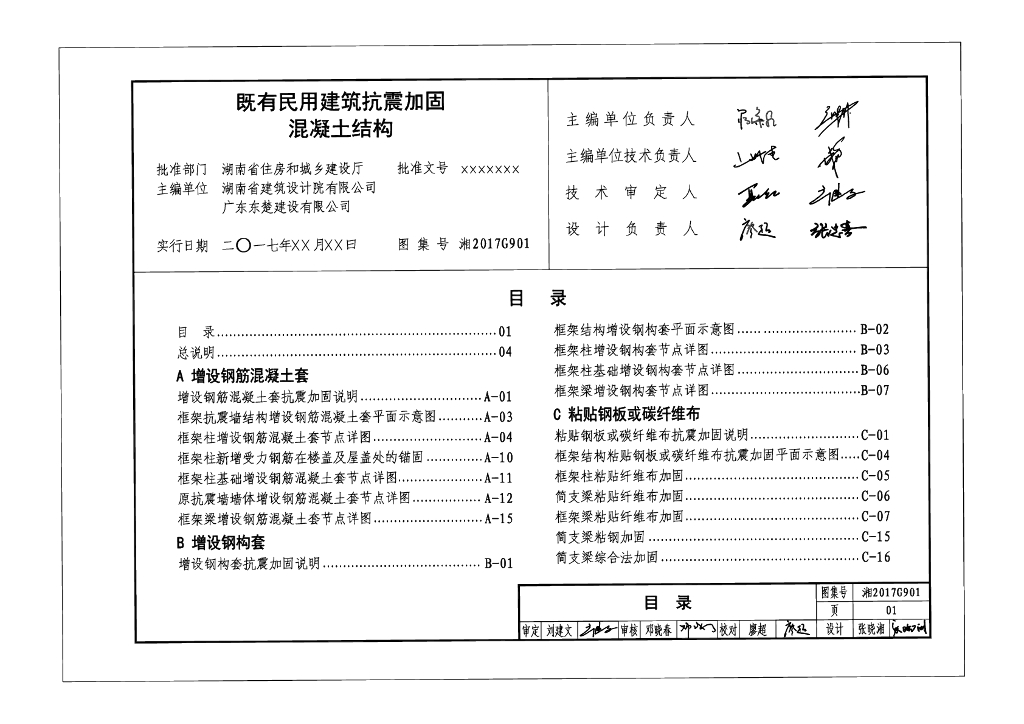 既有民用建筑抗震加固
混凝土结构
批准部门 湖南省住房和城乡建设厅 批准文号 XXXXXXX
主编单位 湖南省建筑设计院有限公司
广东东楚建设有限公司
实行日期 二〇一七年XX月XX日 图集号 湘2017G901
主编单位负责人
主编单位技术负责人
技术审定人
设计负责人
目 录
目 录 01
总说明 04
A 增设钢筋混凝土套
增设钢筋混凝土套抗震加固说明 A-01
框架抗震墙结构增设钢筋混凝土套平面示意图 A-03
框架柱增设钢筋混凝土套节点详图 A-04
框架柱新增受力钢筋在楼盖及屋盖处的锚固 A-10
框架柱基础增设钢筋混凝土套节点详图 A-11
原抗震墙墙体增设钢筋混凝土套节点详图 A-12
框架梁增设钢筋混凝土套节点详图 A-15
B 增设钢构套
增设钢构套抗震加固说明 B-01
框架结构增设钢构套平面示意图 B-02
框架柱增设钢构套节点详图 B-03
框架柱基础增设钢构套节点详图 B-06
框架梁增设钢构套节点详图 B-07
C 粘贴钢板或碳纤维布
粘贴钢板或碳纤维布抗震加固说明 C-01
框架结构粘贴钢板或碳纤维布抗震加固平面示意图 C-04
框架柱粘贴纤维布加固 C-05
简支梁粘贴纤维布加固 C-06
框架梁粘贴纤维布加固 C-07
简支梁粘钢加固 C-15
简支梁综合法加固 C-16
目 录 图集号 湘2017G901
页 01
审定 刘建文 审核 邓晓春 校对 廖超 设计 张晓湘